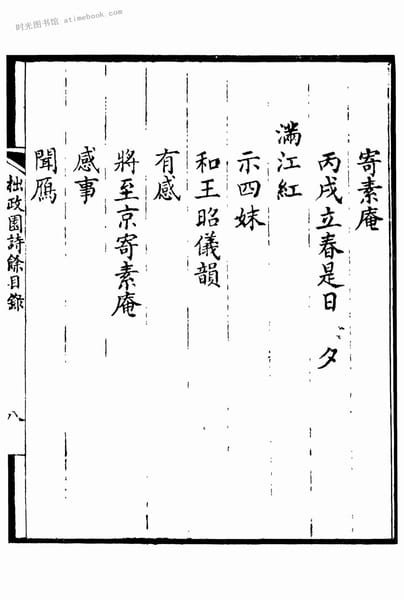 时光图书馆 - atimebook.com
寄素庵
丙戌立春是日 夕
滿江紅
示四妹
和王昭儀韻
有感
將至京寄素庵
感事
聞鴈
拙政園詩餘目錄
八